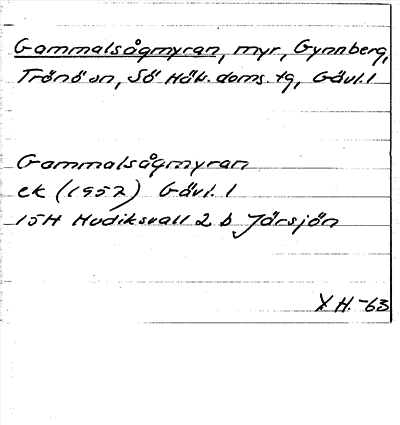 Gammalsågmyran, myr, Gynnberg,
Trönö sn, Sö Häls. doms. tg, Gävl. l
Gammalsågmyran
ek (1957) Gävl. l
15H Hudiksvall 2 b Järsjön
H. -63